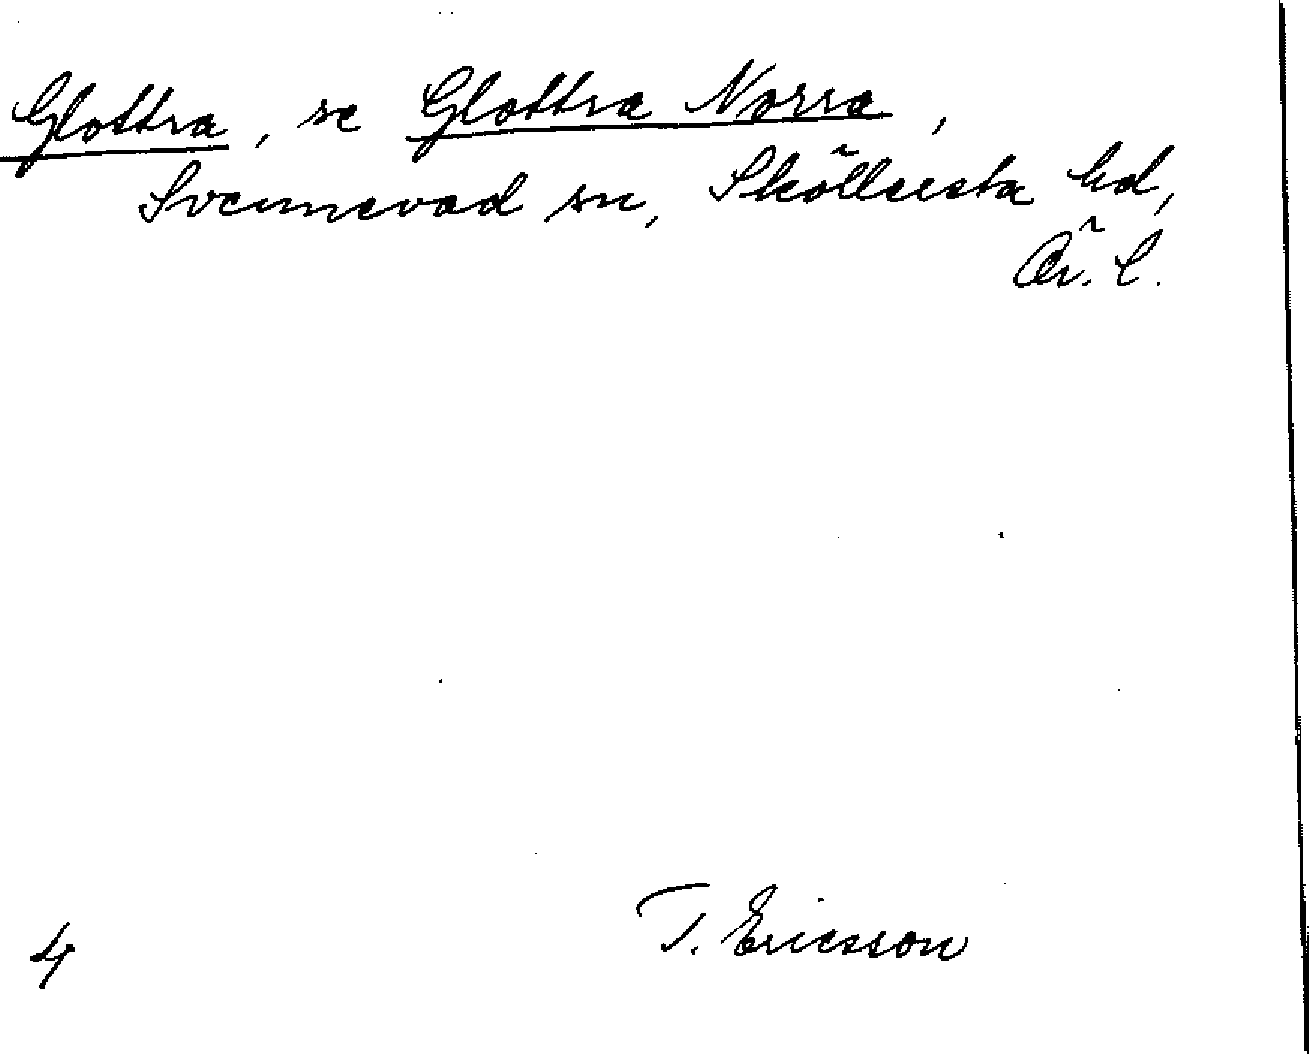 Glottra, se Glottra Norra,
Svennevad sn, Sköllersta hd,
Ör. l.
T. Ericsson
4